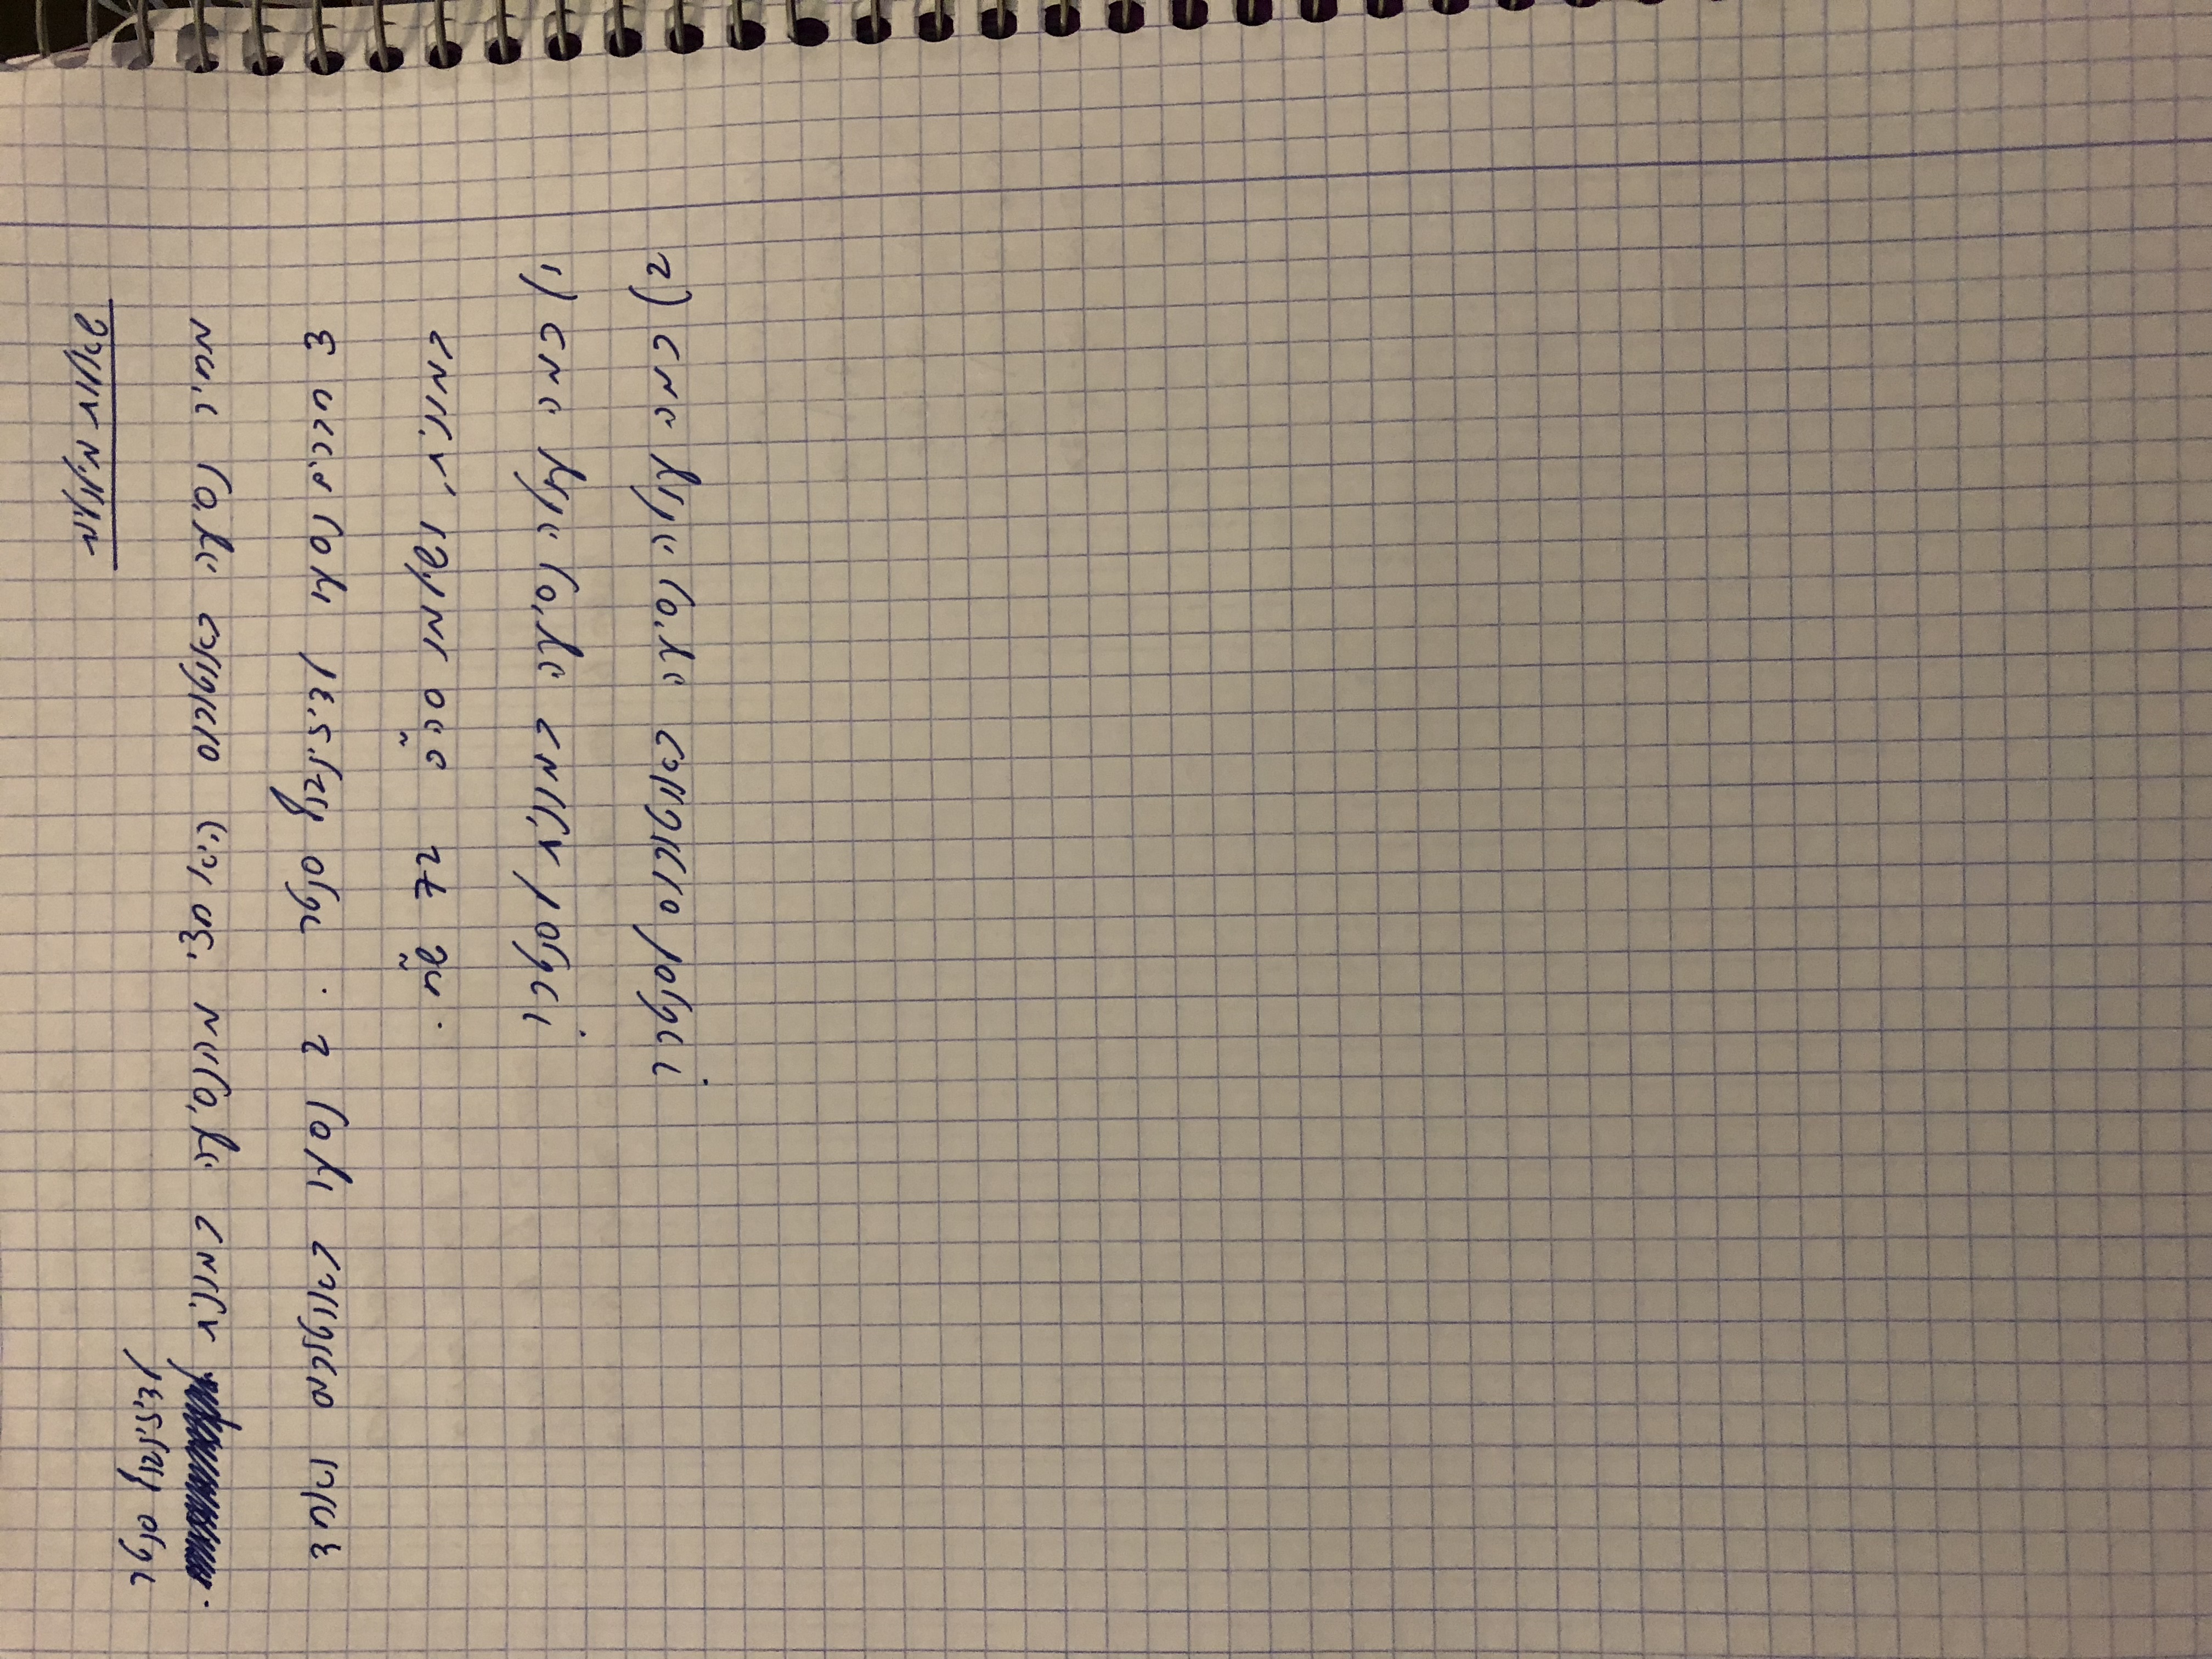 שאלות מילוליות
לדיזינגוף סנטר
מחיר נסיעה באוטובוס היא חצי מהנסיעה במונית .
3 חברים נסעו לדיזינגוף סנטר . 2 נסעו באוטובוס ואחד
במונית, ושילמו סה"כ 72 ש"ח .
1) כמה עולה נסיעה במונית לסנטר?
2) כמה עולה נסיעה באוטובוס לסנטר?